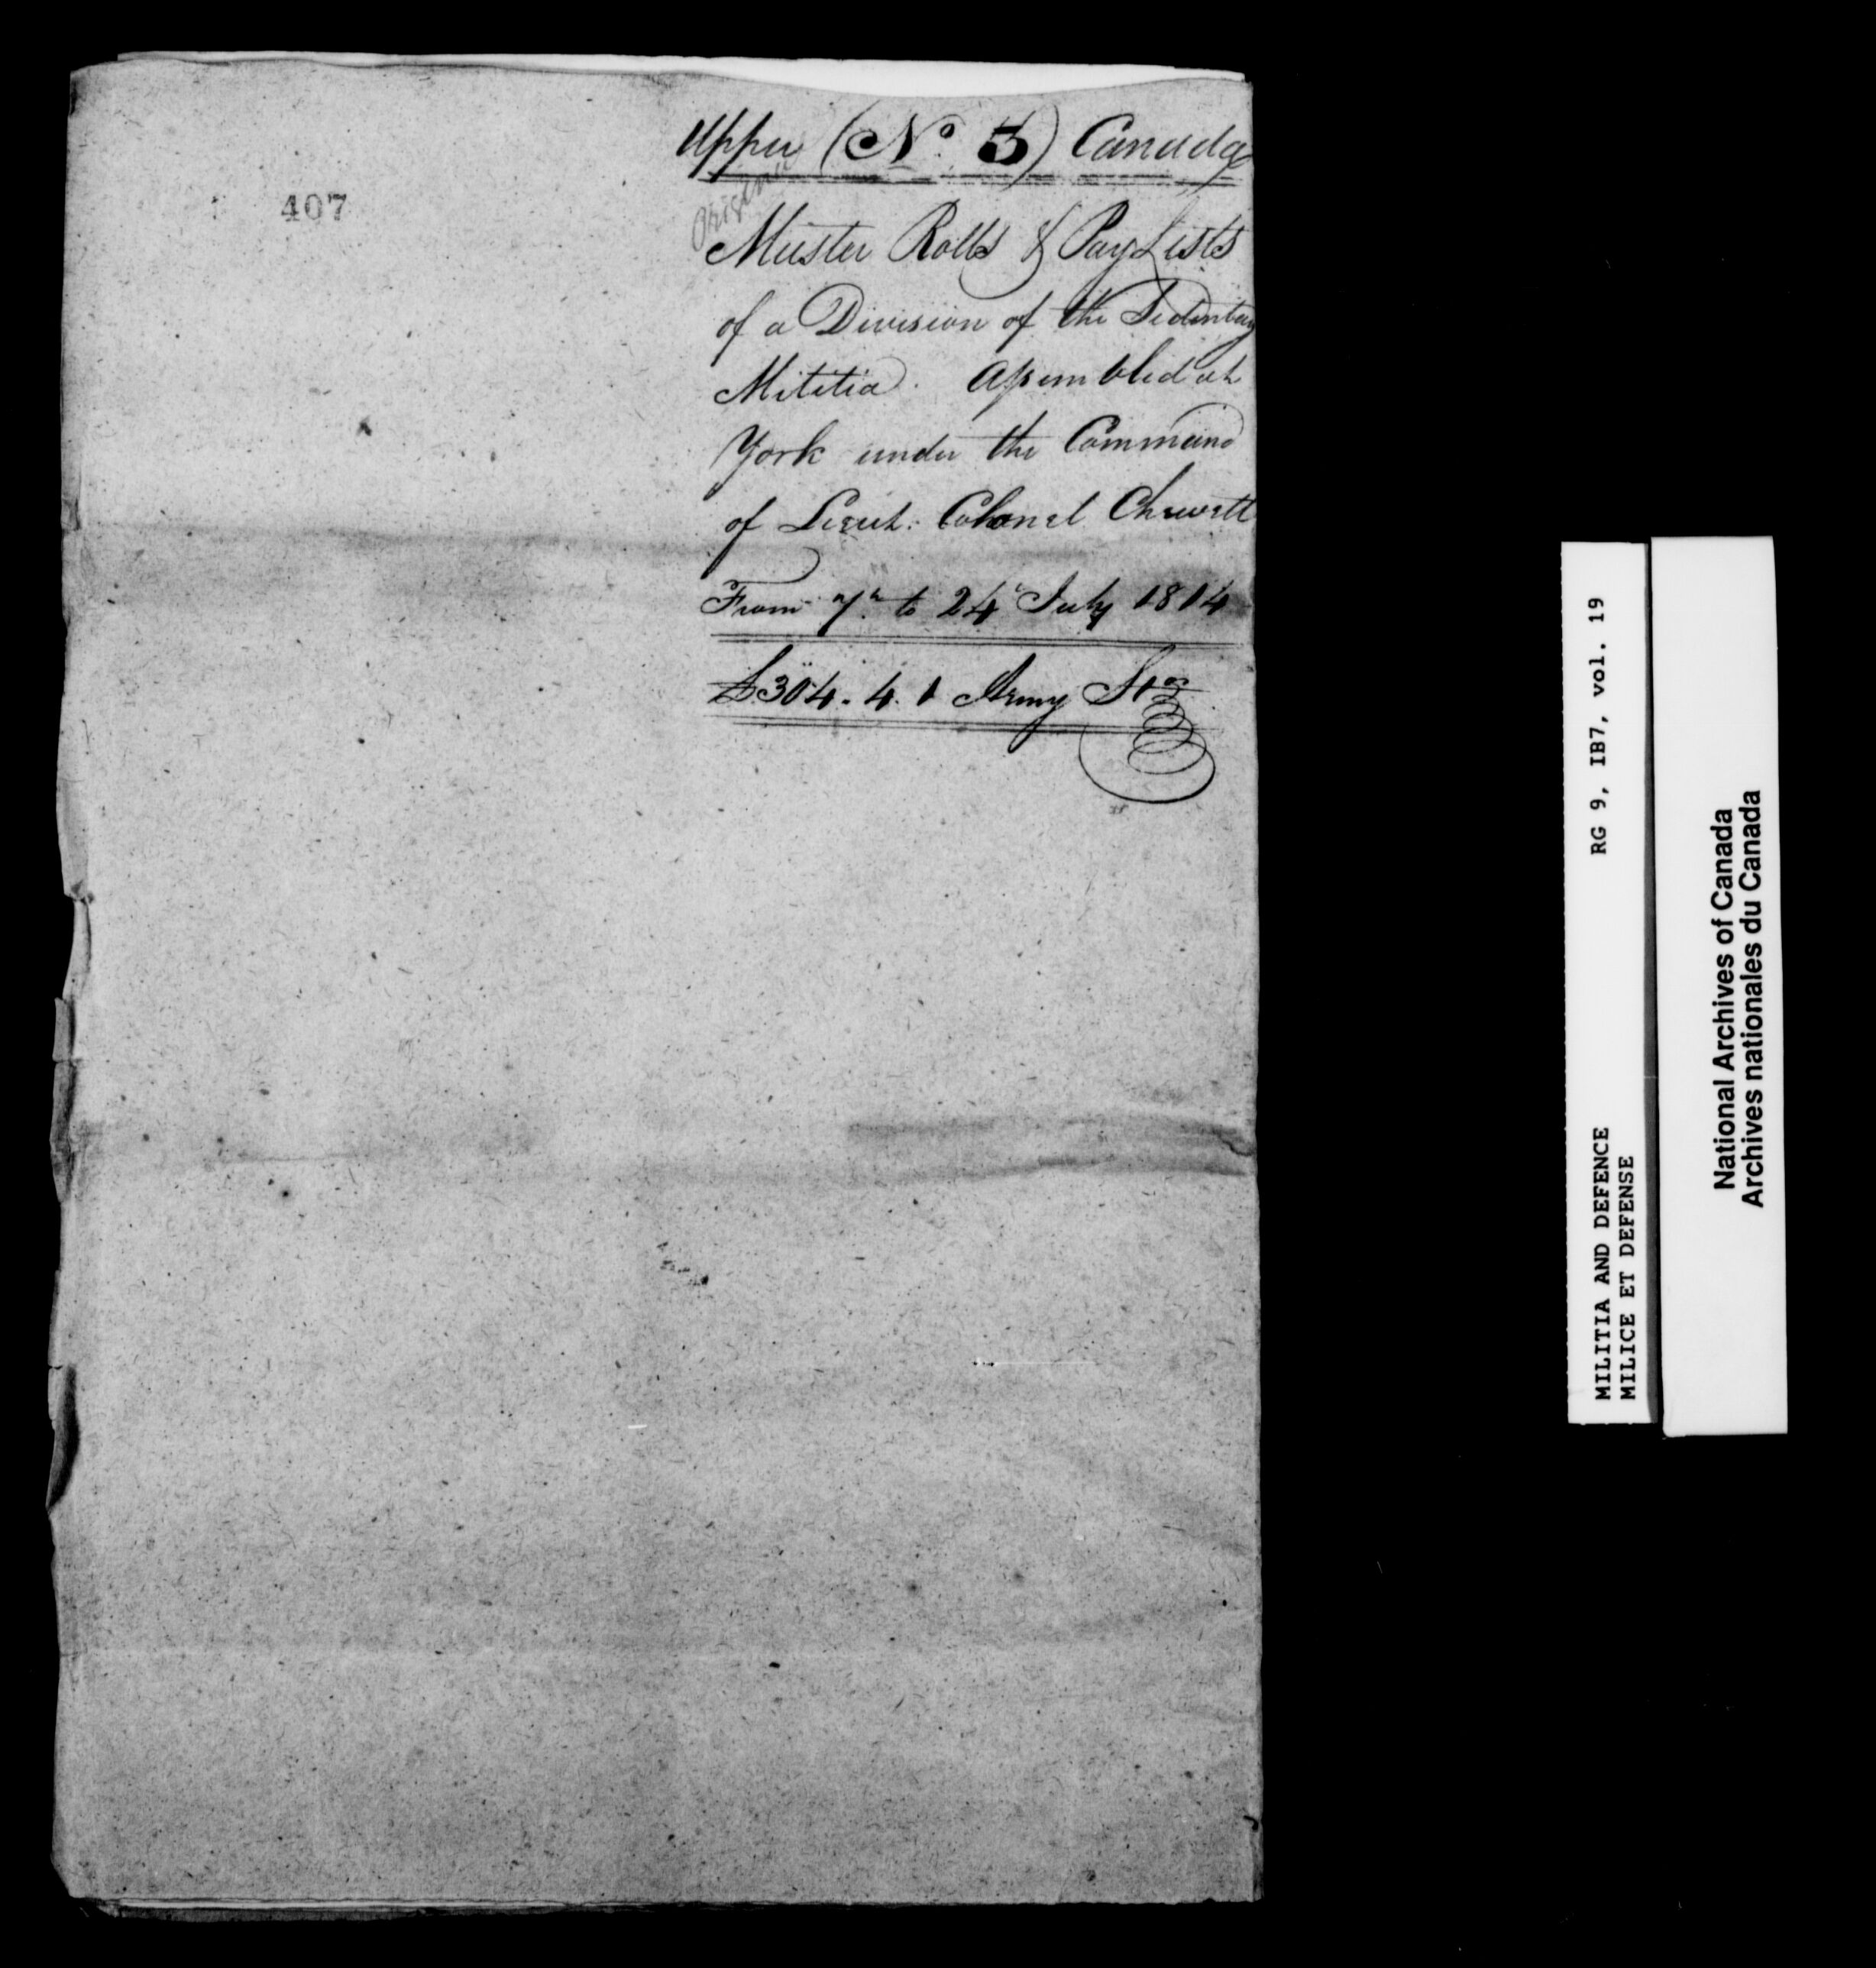 407
Upper (No. 5) Canada
Original
Muster Rolls & Pay Lists
of a Division of the Sedentary
Militia. Assembled at
York under the Command
of Lieut: Colonel Chewett
From 7th to 24th July 1814
£304.4.1 Army Stg
RG 9, IB7, vol. 19
MILITIA AND DEFENCE
MILICE ET DEFENSE
National Archives of Canada
Archives nationales du Canada